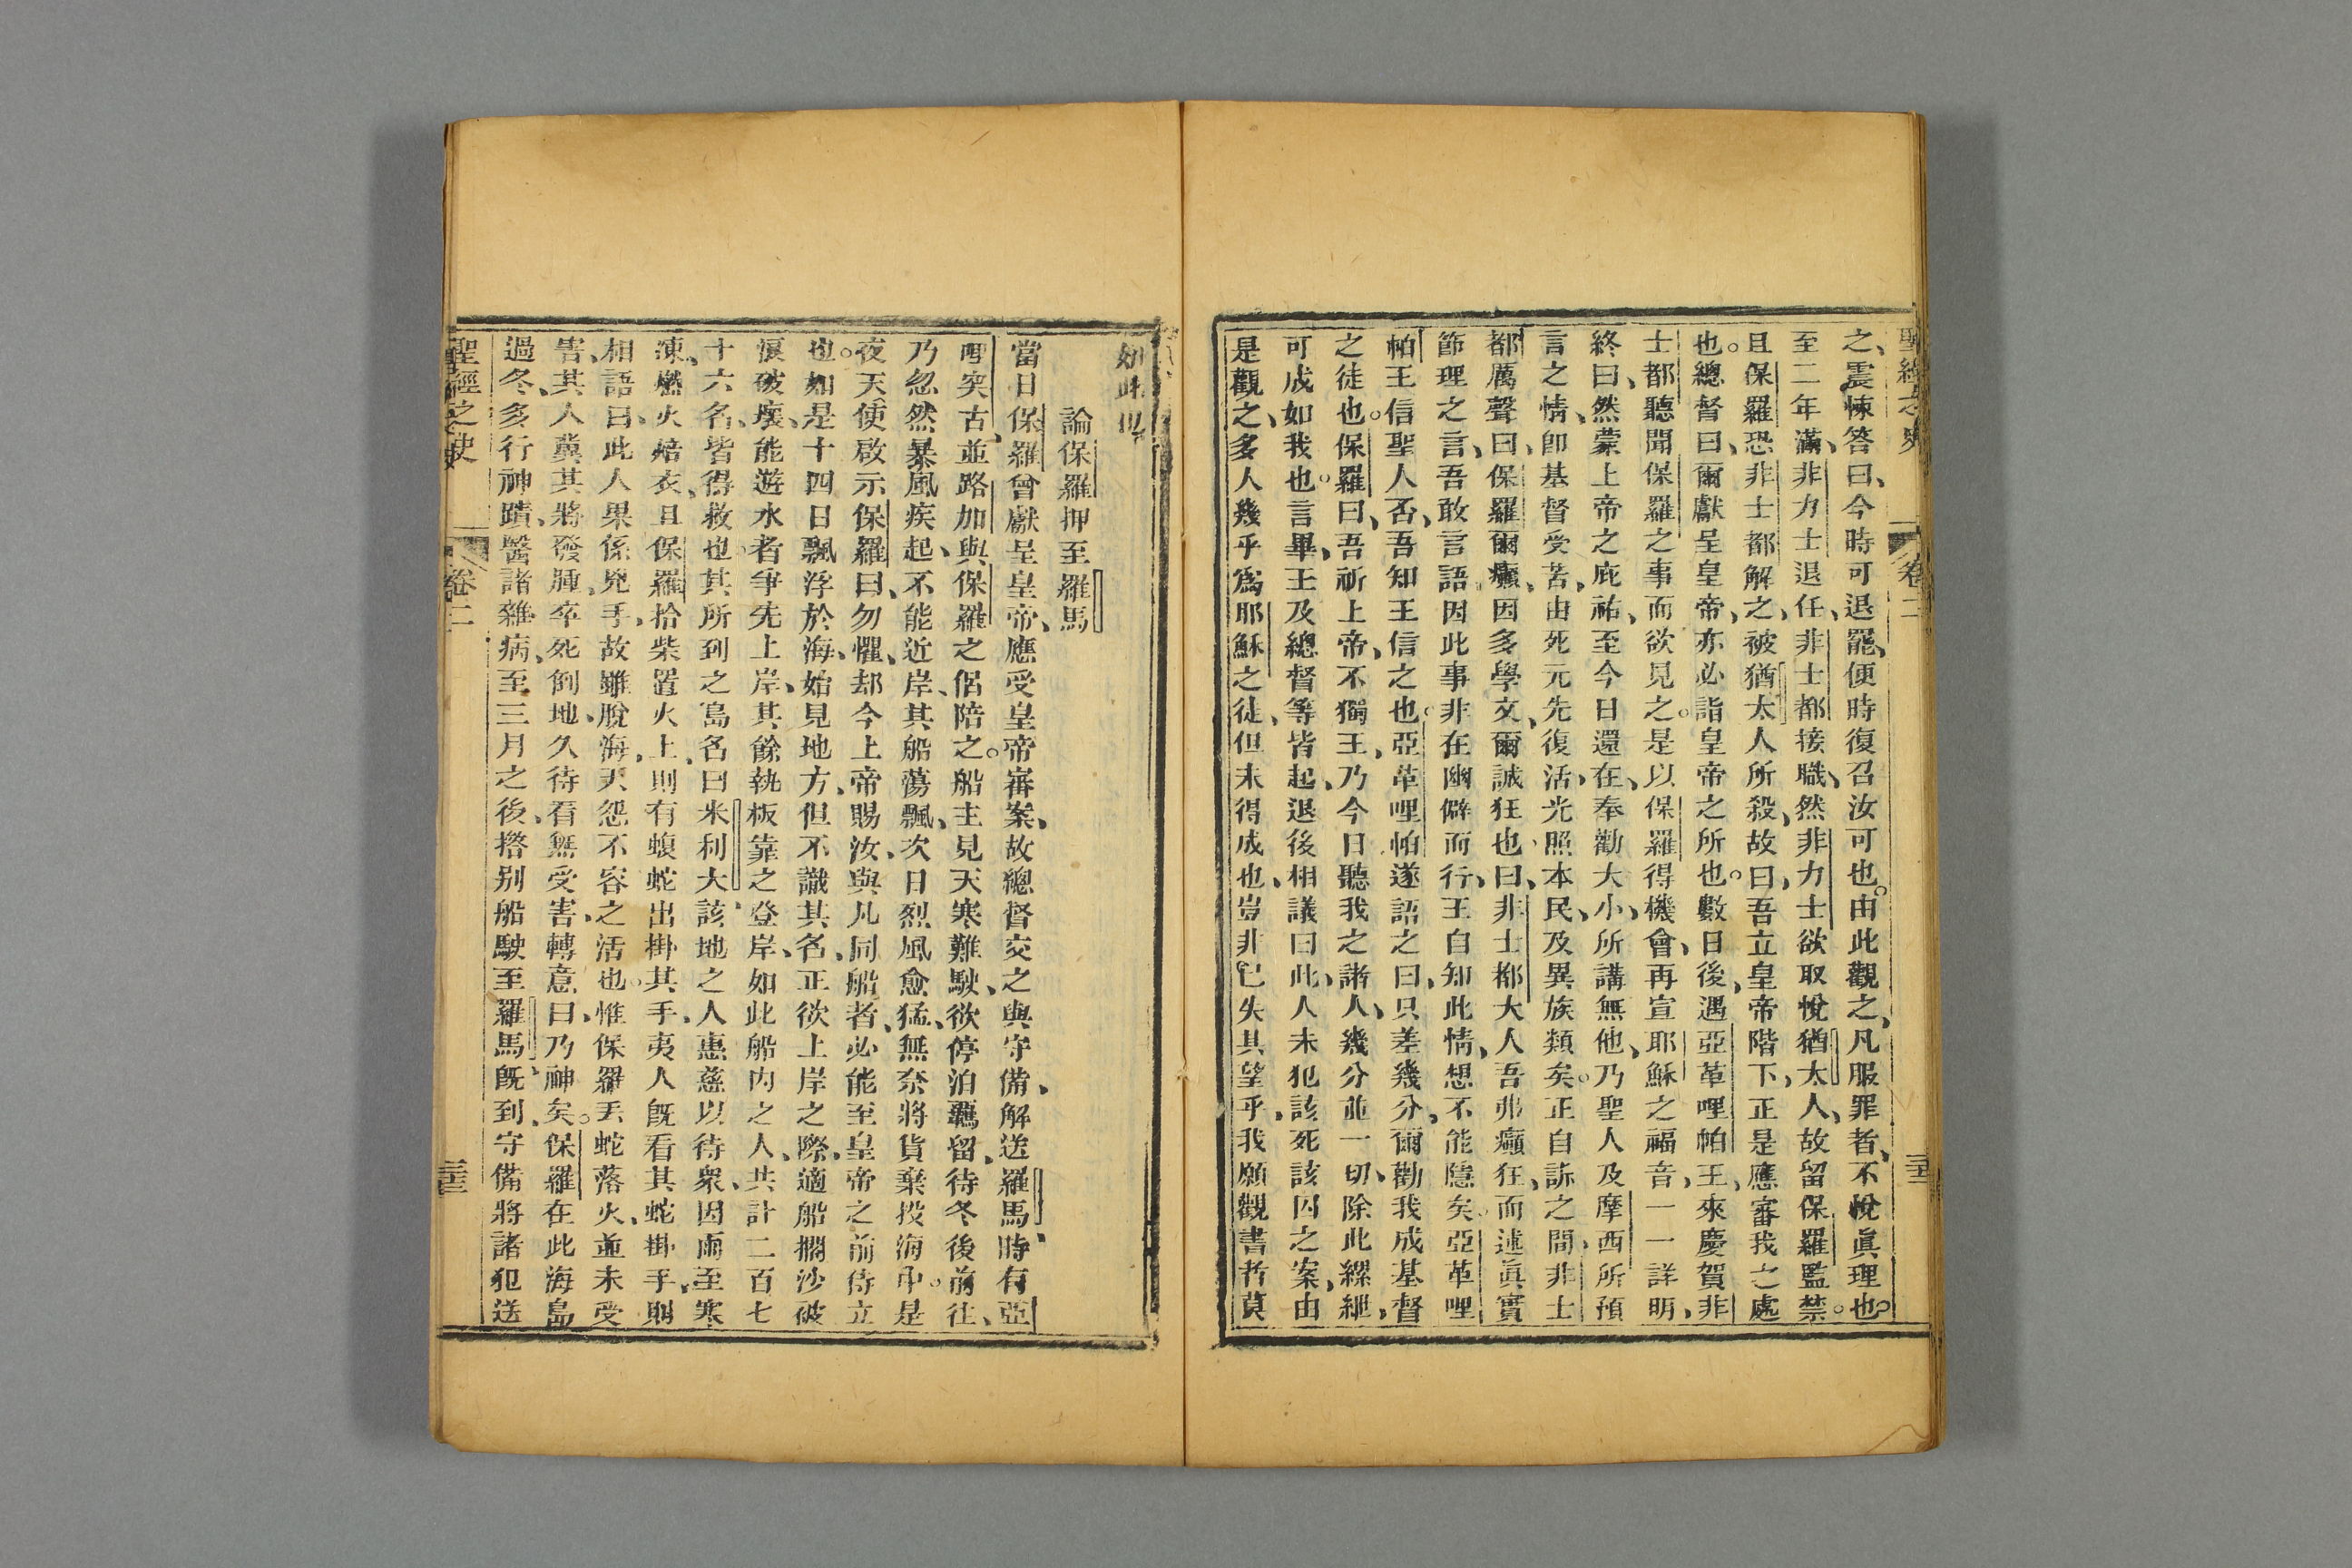 聖經之史 卷二 三十三
之、震悚答曰、今時可退罷、便時復召汝可也。由此觀之、凡服罪者、不悅眞理也。
至二年滿、非力士退任、非士都接職、然非力士欲取悅猶太人、故留保羅監禁。
且保羅恐非士都解之、被猶太人所殺、故曰、吾立皇帝階下、正是應審我之處
也。總督曰、爾獻呈皇帝、亦必詣皇帝之所也。數日後、遇亞革哩帕王、來慶賀非
士都、聽聞保羅之事、而欲見之。是以保羅得機會、再宣耶穌之福音、一一詳明、
終曰、然蒙上帝之庇祐、至今日還在、奉勸大小、所講無他、乃聖人及摩西所預
言之情、卽基督受苦、由死元先復活、光照本民、及異族類矣。正自訴之間、非士
都厲聲曰、保羅爾癲、因多學文、爾誠狂也、曰、非士都大人、吾弗癲狂、而述眞實
節理之言、吾敢言語、因此事非在幽僻而行、王自知此情、想不能隱矣。亞革哩
帕王信聖人否、吾知王信之也。亞革哩帕遂語之曰、只差幾分、爾勸我成基督
之徒也。保羅曰、吾祈上帝、不獨王、乃今日聽我之諸人、幾分並一切、除此縲絏、
可成如我也。言畢、王及總督等皆起、退後相議曰、此人未犯該死該囚之案、由
是觀之、多人幾乎爲耶穌之徒、但未得成也、豈非已失其望乎、我願觀書者莫
如此也
論保羅押至羅馬
當日保羅曾獻呈皇帝、應受皇帝審案、故總督交之與守備、解送羅馬、時有亞
哩突古、並路加與保羅之侶陪之。船主見天寒難駛、欲停泊羈留、待冬後前往、
乃忽然暴風疾起、不能近岸、其船蕩飄、次日烈風愈猛、無奈將貨棄投海中。是
夜天使啟示保羅曰、勿懼、却今上帝賜汝、與凡同船者、必能至皇帝之前侍立
也。如是十四日飄浮於海、始見地方、但不識其名、正欲上岸之際、適船擱沙破
損破壞、能遊水者爭先上岸、其餘執板靠之登岸、如此船内之人、共計二百七
十六名、皆得救也。其所到之島、名曰米利大、該地之人惠慈以待衆、因雨至寒
凍、燃火焙衣、且保羅拾柴置火上、則有蝮蛇出掛其手、夷人旣看其蛇掛手、則
相語曰、此人果係兇手、故雖脫海、天怨不容之活也。惟保羅丟蛇落火、並未受
害、其人冀其將發腫、卒死倒地、久待看無受害、轉意曰、乃神矣。保羅在此海島
過冬、多行神蹟、醫諸雜病、至三月之後、撘别船駛至羅馬、旣到、守備將諸犯送
聖經之史 卷二 三十三